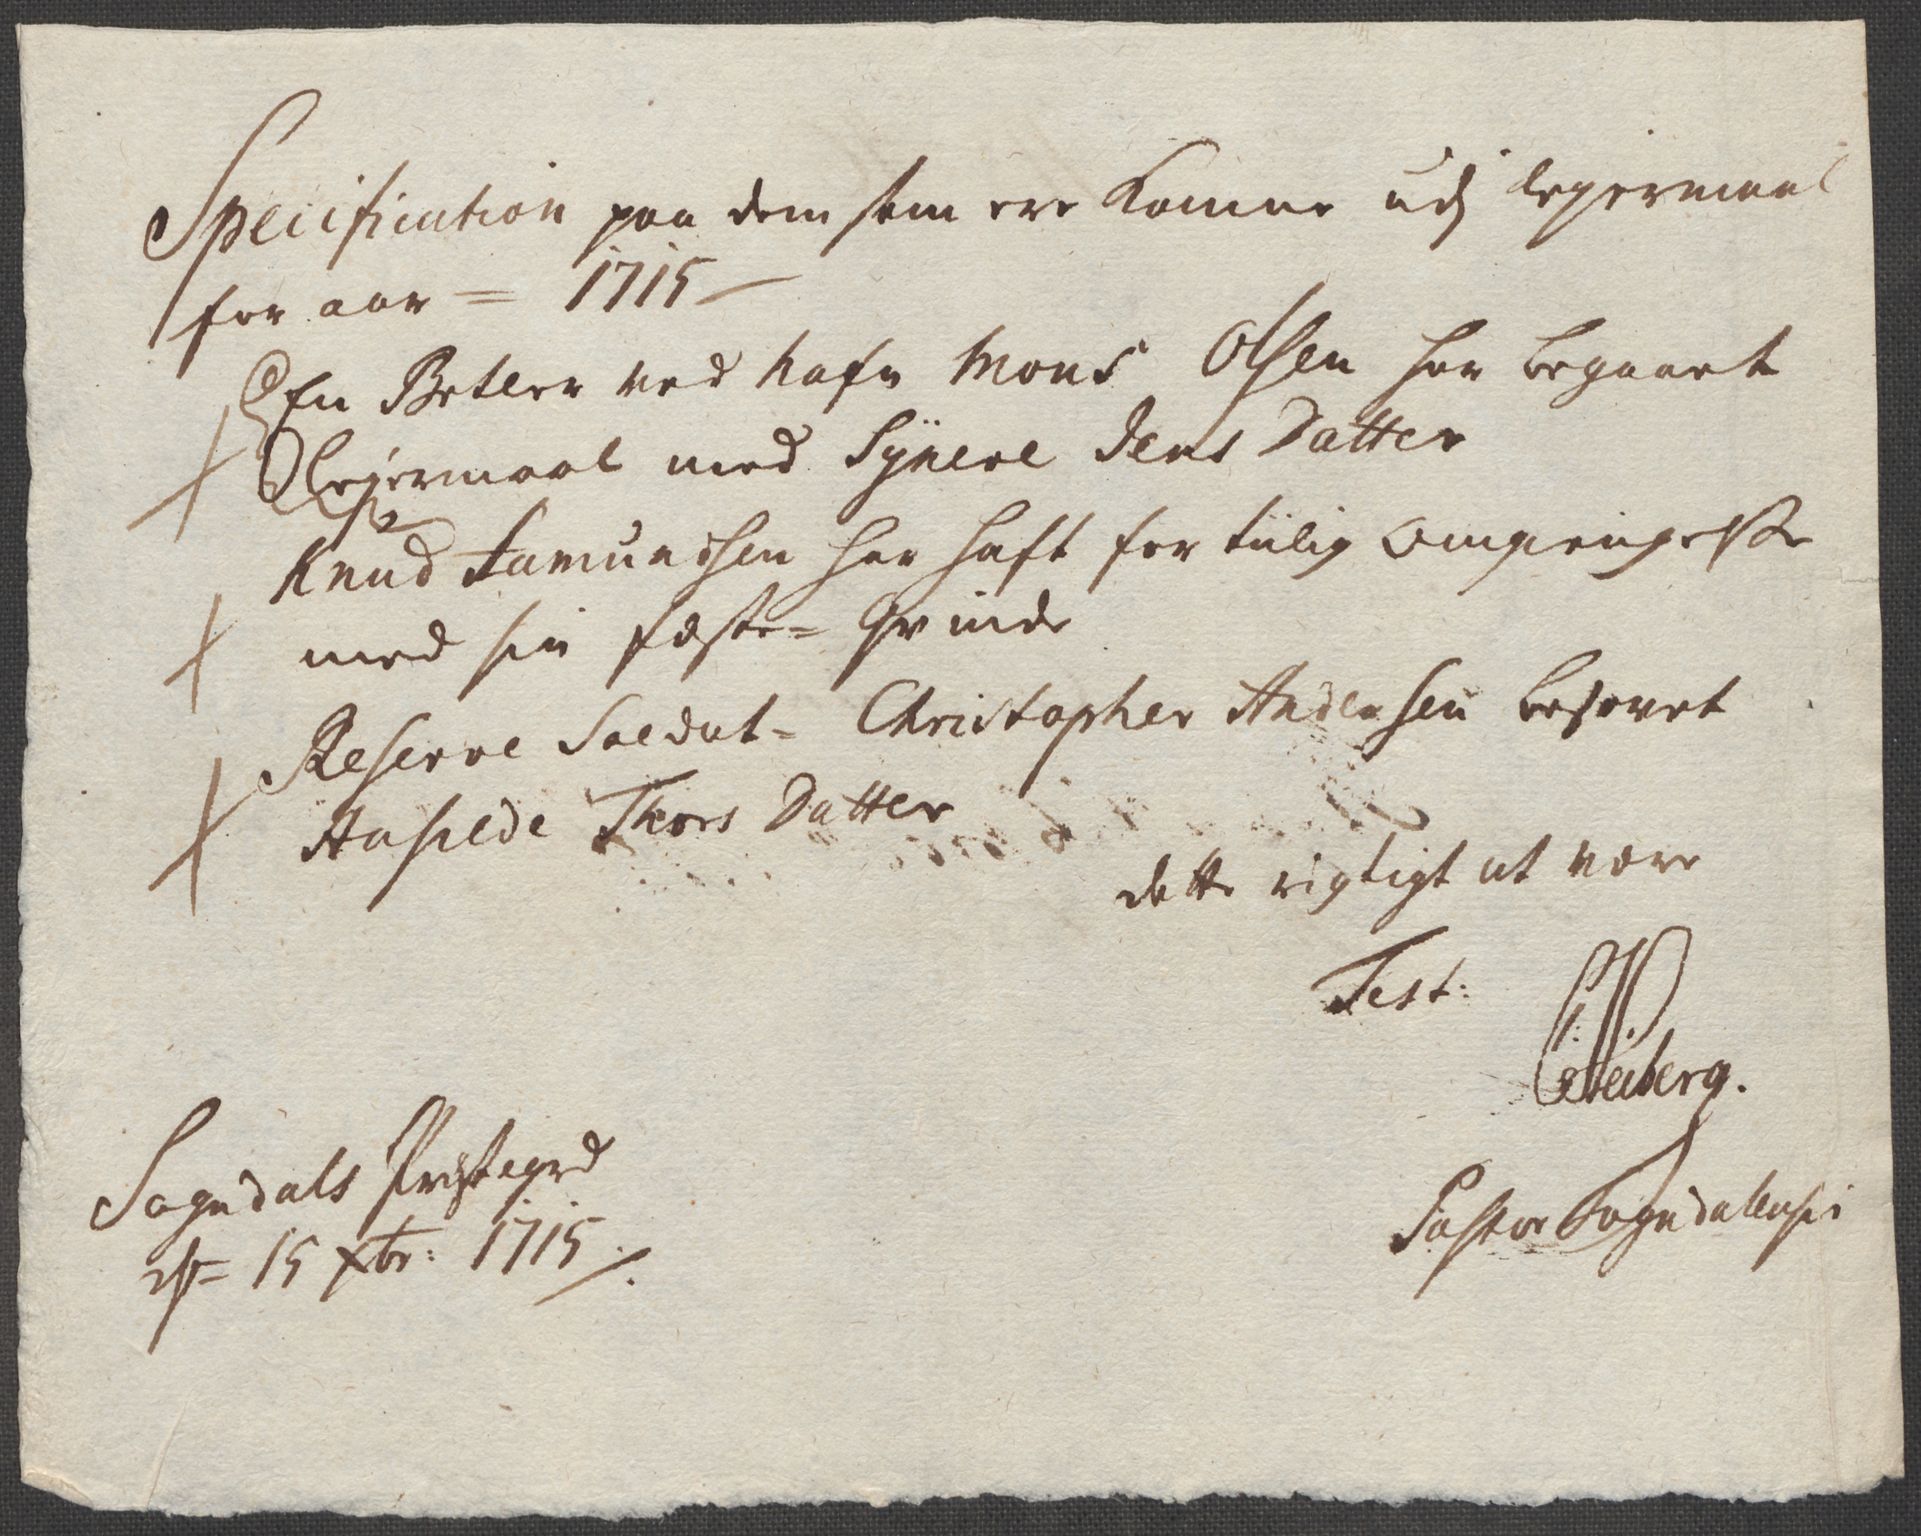 Specification paa dem som ere Komne udj lejermaal
for aar = 1715 –
En Betler ved Nafn Mons Olsen har begaaet
Lejermaal med Syneve Jens Datter
Knud Samundsen har haft for tiilig omgiengelse
med sin fæste = Qvinde
Reserve Soldat = Christopher Andersen besovet
Aasilde Thors Datter
dette rigtigt at være
Test:
Heiberg.
Pastor Sogndalensis
Sogndals Præstegrd
d = 15 xbr: 1715